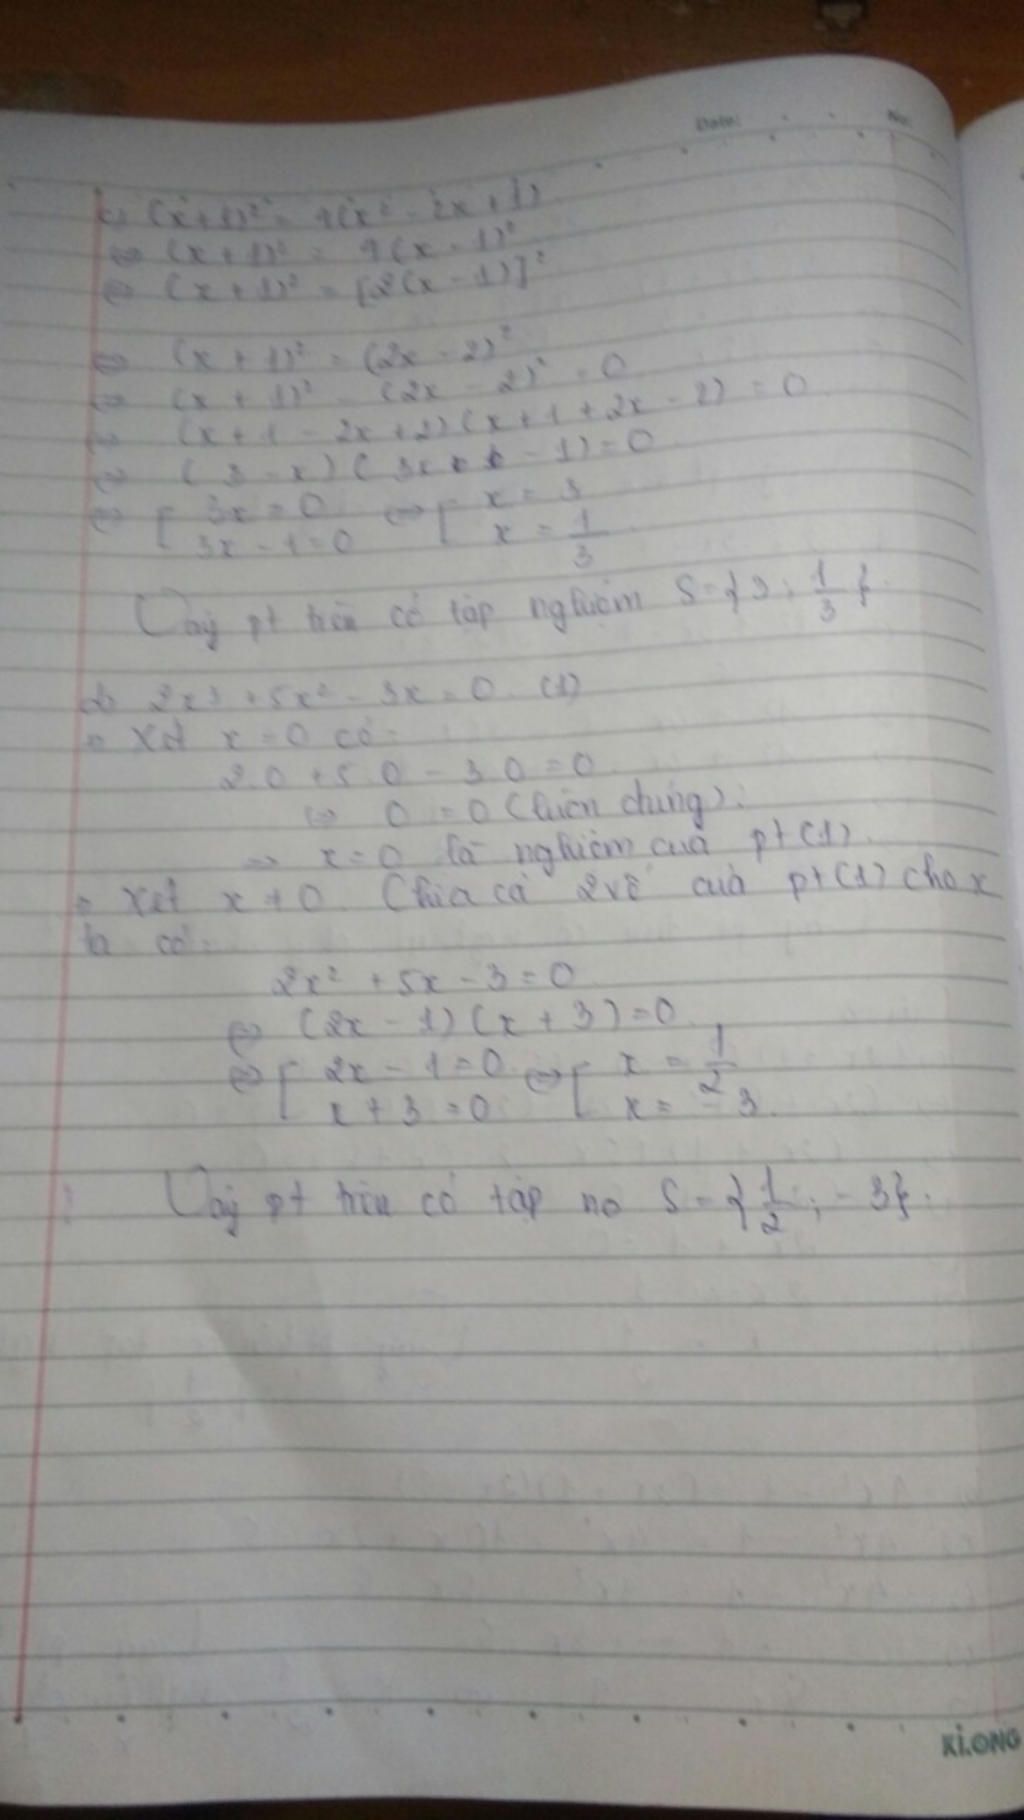 Date: No:
c) (x+1)² = 4(x² - 2x + 1)
⇔ (x+1)² = 4(x - 1)²
⇔ (x+1)² = [2(x - 1)]²
⇔ (x + 1)² = (2x - 2)²
⇔ (x + 1)² - (2x - 2)² = 0
⇔ (x + 1 - 2x + 2)(x + 1 + 2x - 2) = 0
⇔ (3 - x)(3x - 1) = 0
⇔ [ 3x = 0 ⇔ [ x = 3
3x - 1 = 0 x = 1/3
Vậy pt trên có tập nghiệm S = {3; 1/3}.
d) 2x³ + 5x² - 3x = 0 (1)
Xét x = 0 có:
2.0 + 5.0 - 3.0 = 0
⇔ 0 = 0 (luôn đúng).
⇒ x = 0 là nghiệm của pt (1).
Xét x ≠ 0. Chia cả 2 vế của pt (1) cho x
ta có:
2x² + 5x - 3 = 0
⇔ (2x - 1)(x + 3) = 0
⇔ [ 2x - 1 = 0 ⇔ [ x = 1/2
x + 3 = 0 x = - 3
Vậy pt trên có tập no S = {1/2; - 3}.
KI.ONG